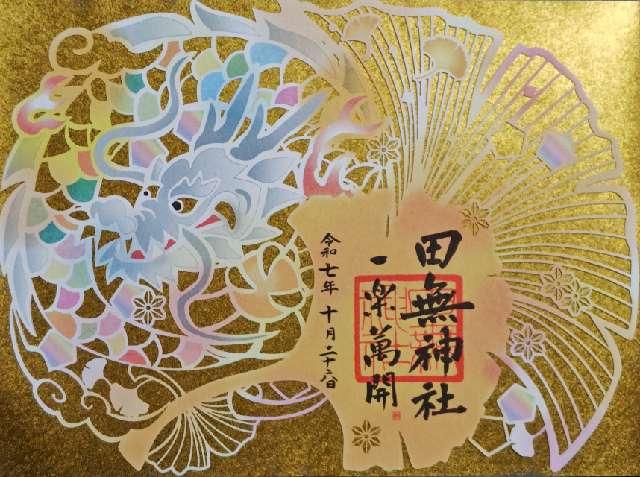 田無神社
一楽萬開
令和七年十月二十六日